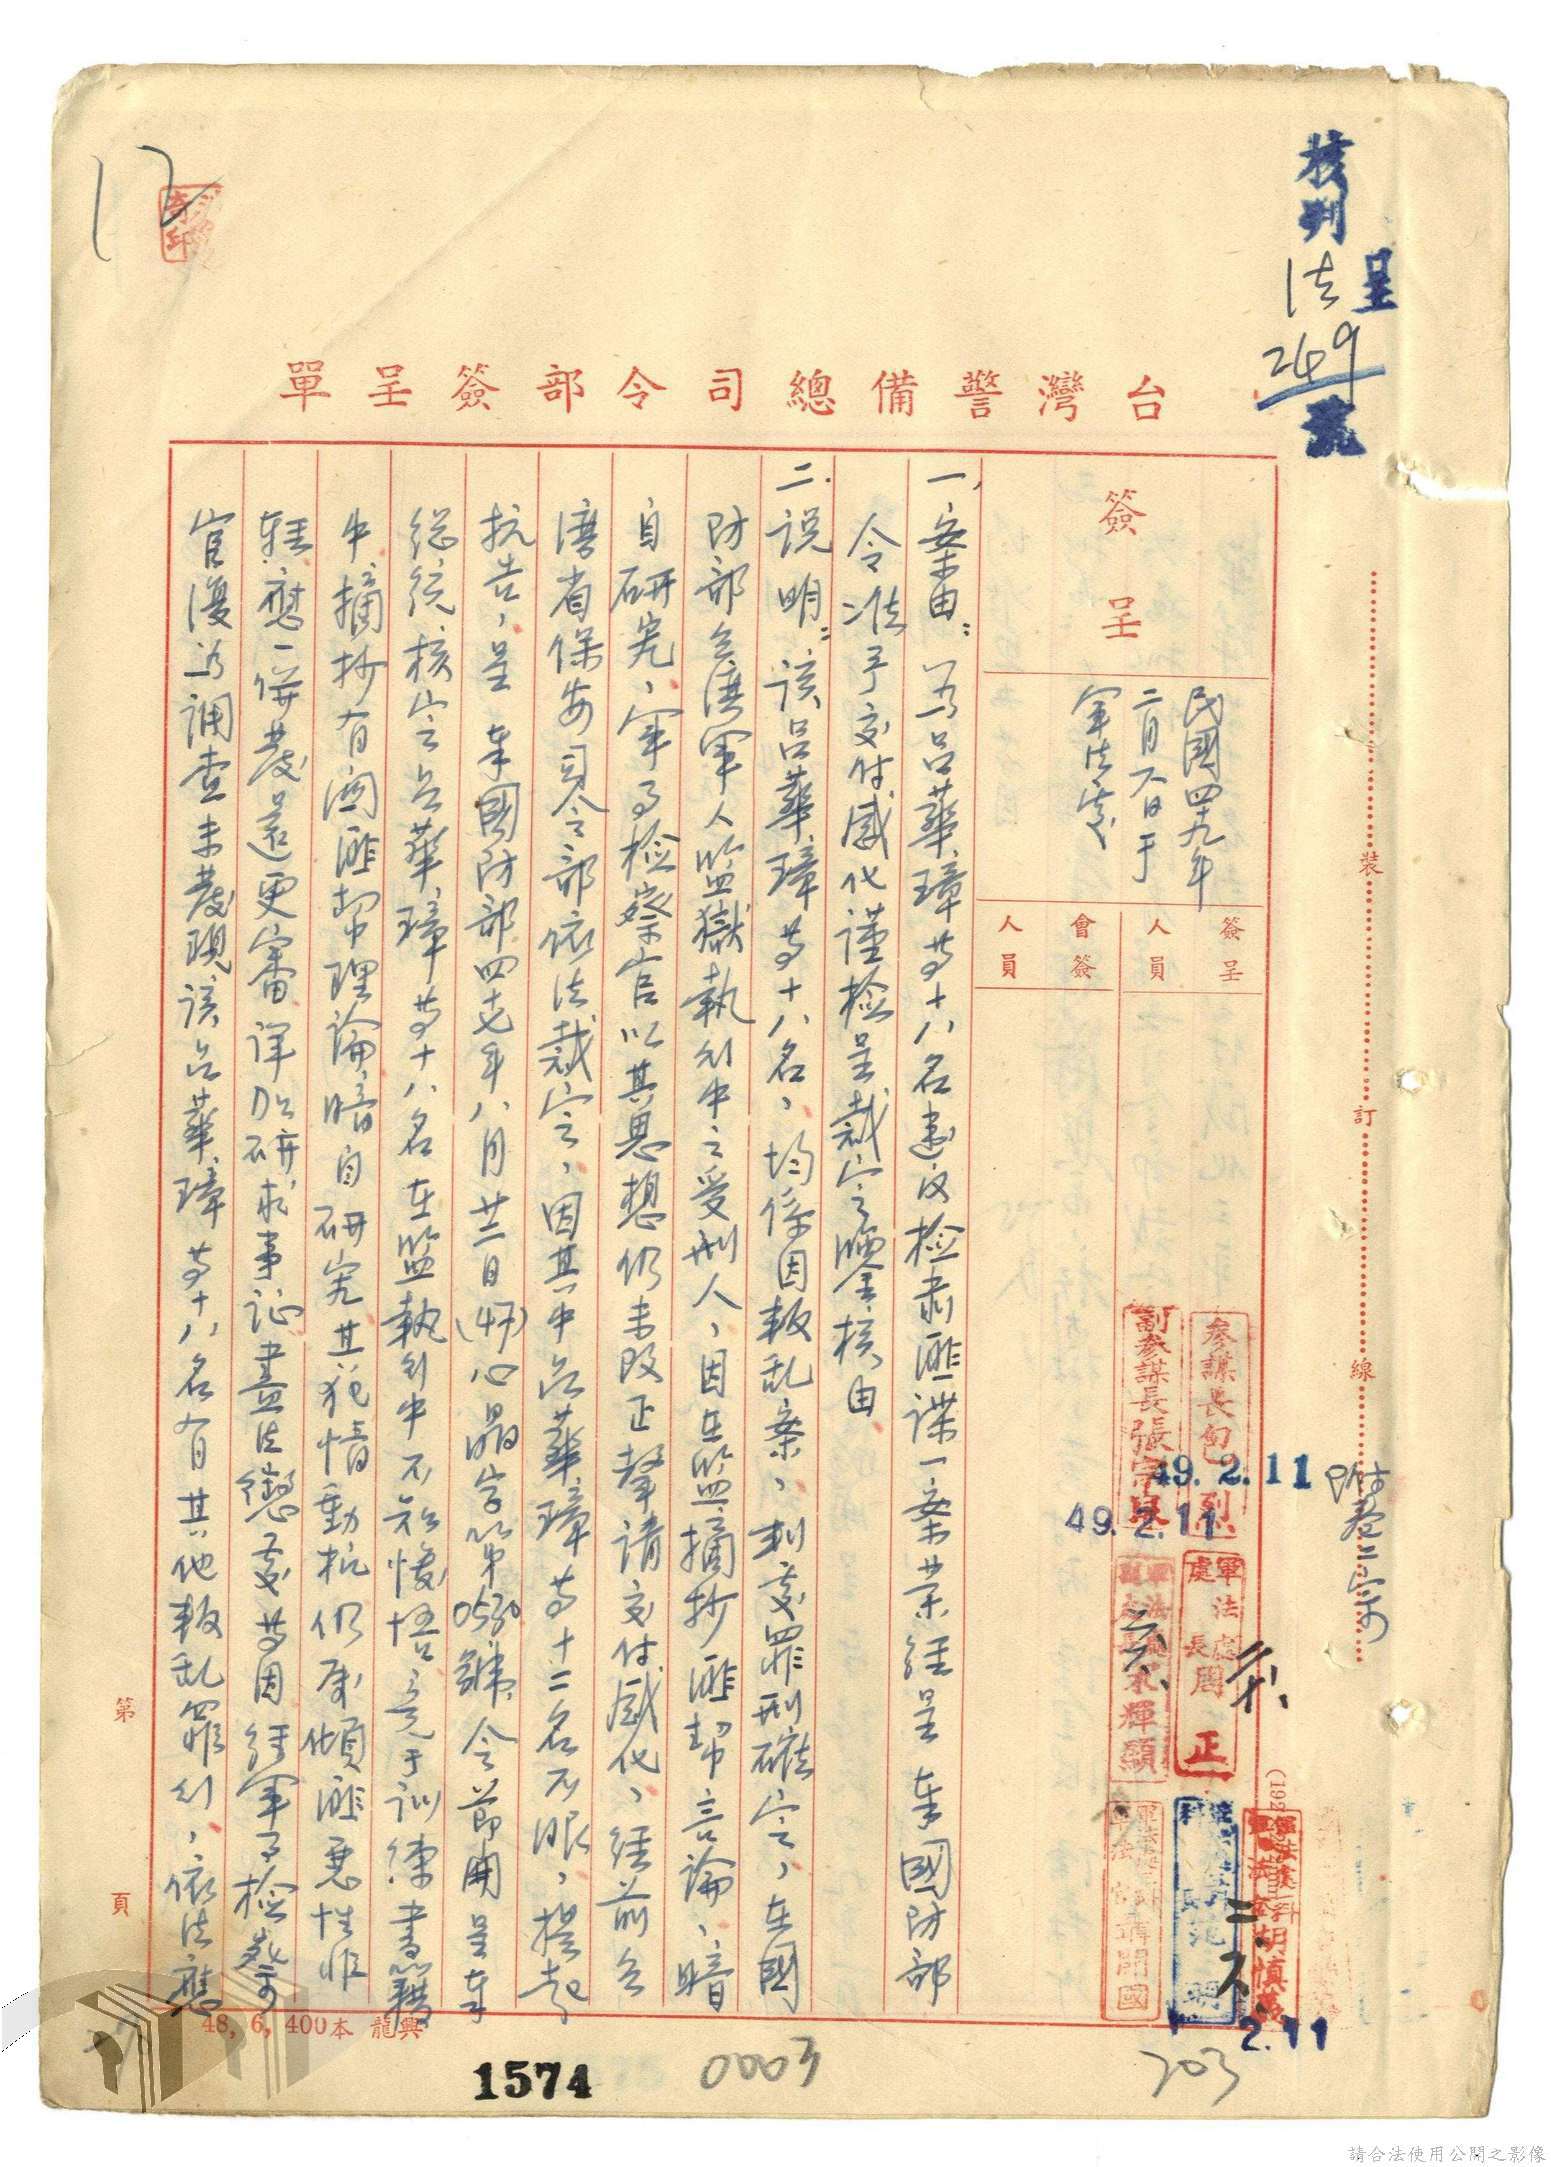 核判
呈
法
249
號
12
台灣警備總司令部簽呈單
簽呈
民國四十九年
二月六日于
軍法處
簽呈人員
會簽人員
參謀長
49.2.11
副參謀長張宗良
49.2.11
軍法處處長周正
2.11
附卷二宗
裝
訂
線
一、案由：為呂華璋等十八名建議檢肅匪諜一案業經呈奉國防部
令准予交付感化謹檢呈裁定暨全核由
二、說明：該呂華璋等十八名，均係因叛乱案，判處罪刑確定，在國
防部台灣軍人監獄執行中之受刑人，因在監摘抄匪幫言論，暗
自研究，軍事檢察官以其思想仍未改正聲請交付感化，經前台
灣省保安司令部依法裁定，因其中呂華璋等十二名不服，提起
抗告，呈奉國防部四七年八月廿二日(47)心晶字第0530號令節開呈奉
總統核定呂華璋等十八名在監執行中不知悛悟竟于訓練書籍
中摘抄有関匪幫理論暗自研究其犯情動机仍屬傾匪惡性非
輕應一併發還更審詳加研求事証書盡法懲處等因經軍事檢察
官復為調查未發現該呂華璋等十八名有其他叛乱罪行，依法應
第
頁
48,6,400本 龍興
1574
0003
203
請合法使用公開之影像